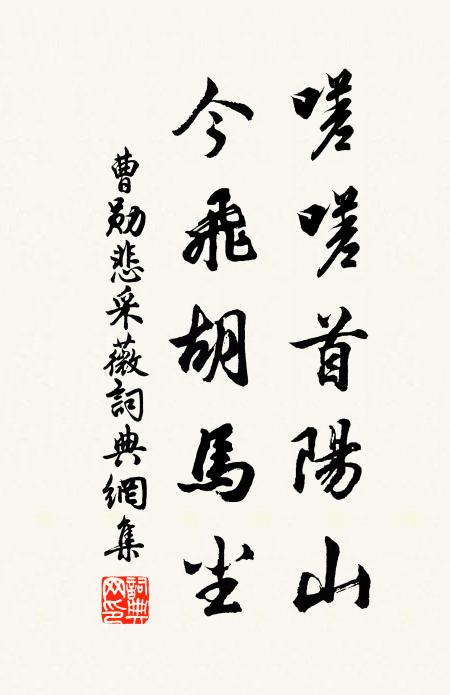 嗟嗟首陽山
今飛胡馬尘
曹勛悲采薇詞典網集
詞典
网印